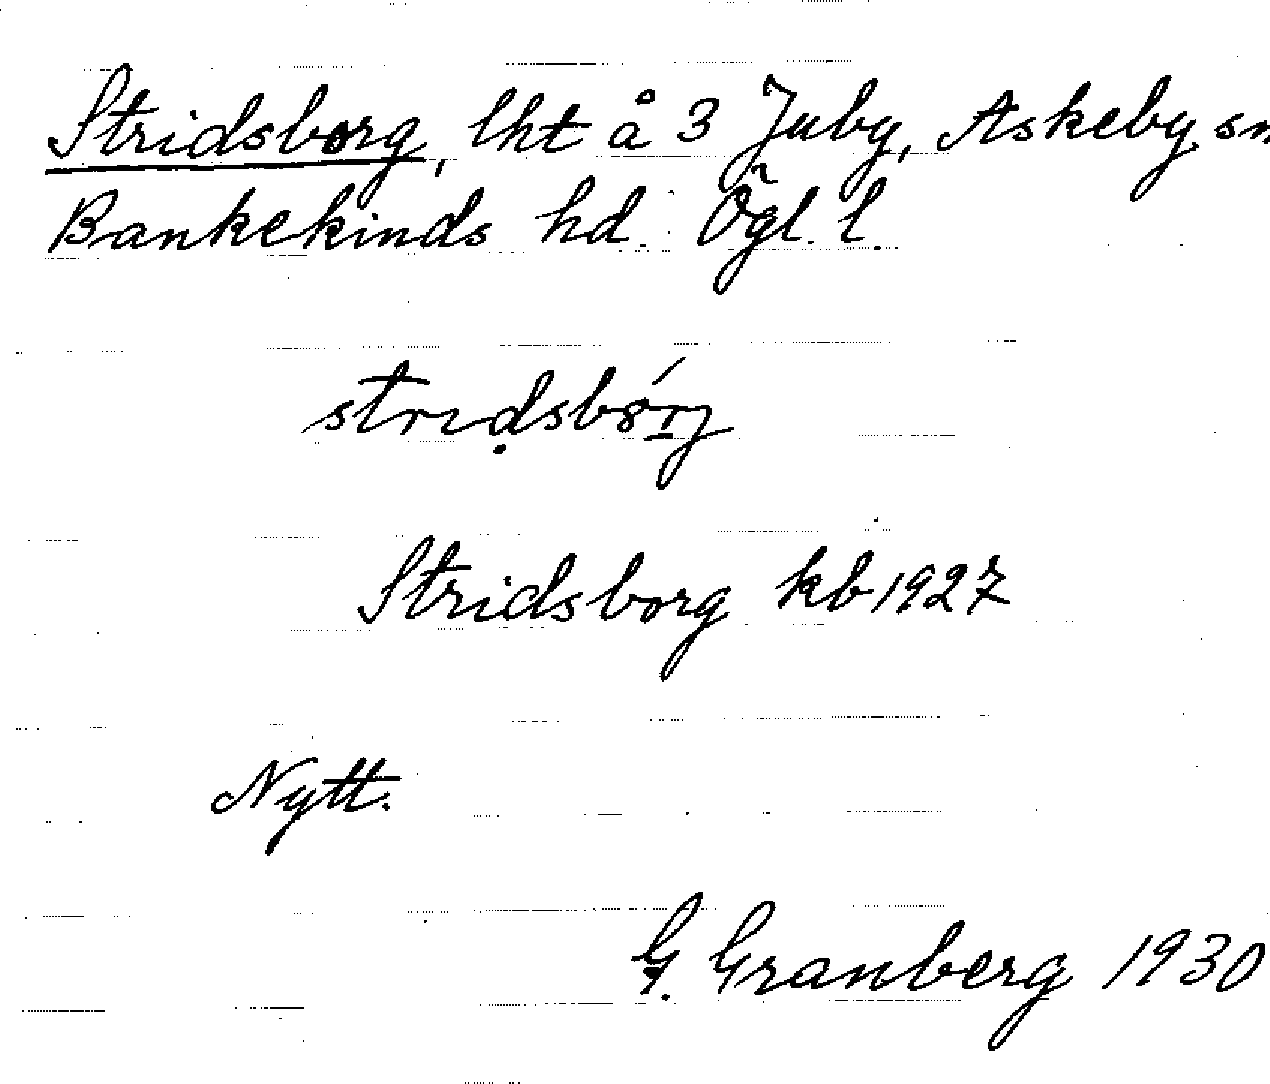 Stridsborg, lht å 3 Juby, Askeby sn
Bankekinds hd. Ögl. l.
Stridsborg kb 1927
Nytt.
G. Granberg 1930